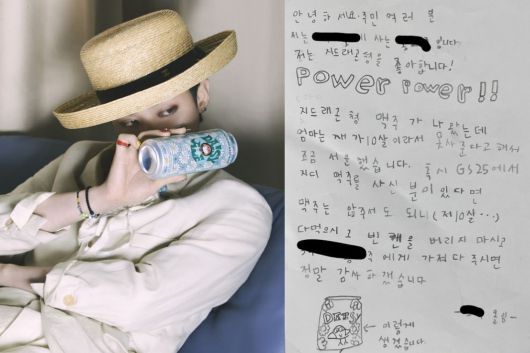 안녕하세요. 주민 여러분
저는 에 사는 입니다.
저는 지드래곤형을 좋아합니다!
POWER POWER!!
지드래곤 형 맥주가 나왔는데
엄마는 제가 10살이라서 못사준다고 해서
조금 서운했습니다. 혹시 GS25에서
지디 맥주를 사신 분이 있다면
맥주는 안주셔도 되니(저10살...)
다먹으시고 빈 캔을 버리지 마시고
에게 가져다 주시면
정말 감사하겠습니다
DAISY
← 이렇게
생겼습니다
- 올림-